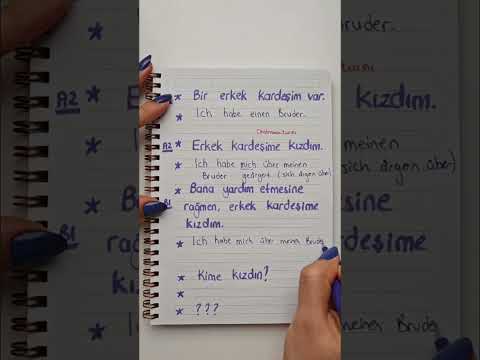 * Bir erkek kardeşim var.
* Ich habe einen Bruder.
A2 * Erkek kardeşime kızdım.
* Ich habe mich über meinen
Bruder geärgert. (sich ärgern über)
* Bana yardım etmesine
B1 rağmen, erkek kardeşime
kızdım.
* Ich habe mich über meinen Brude
* Kime kızdın?
*
* ???